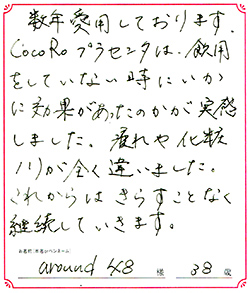 数年愛用しております。
CocoRoプラセンタは、飲用
をしていない時にいか
に効果があったのかが実感
しました。疲れや化粧
ノリが全く違いました。
これからはきらすことなく
継続していきます。
お名前(本名・ペンネーム)
around 48 様 38 歳